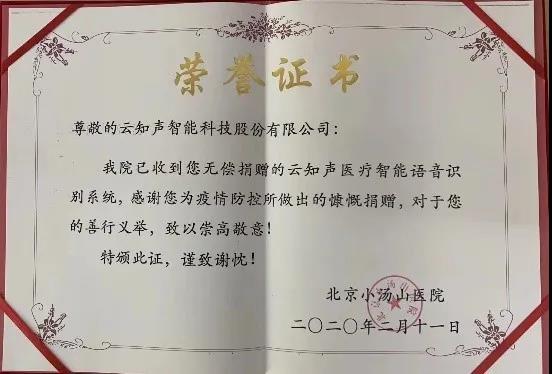 荣誉证书
尊敬的云知声智能科技股份有限公司：
我院已收到您无偿捐赠的云知声医疗智能语音识
别系统，感谢您为疫情防控所做出的慷慨捐赠，对于您
的善行义举，致以崇高敬意！
特颁此证，谨致谢忱！
北京小汤山医院
二〇二〇年二月十一日